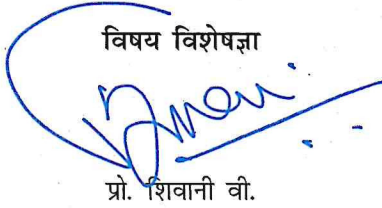 विषय विशेषज्ञा
प्रो. शिवानी वी.